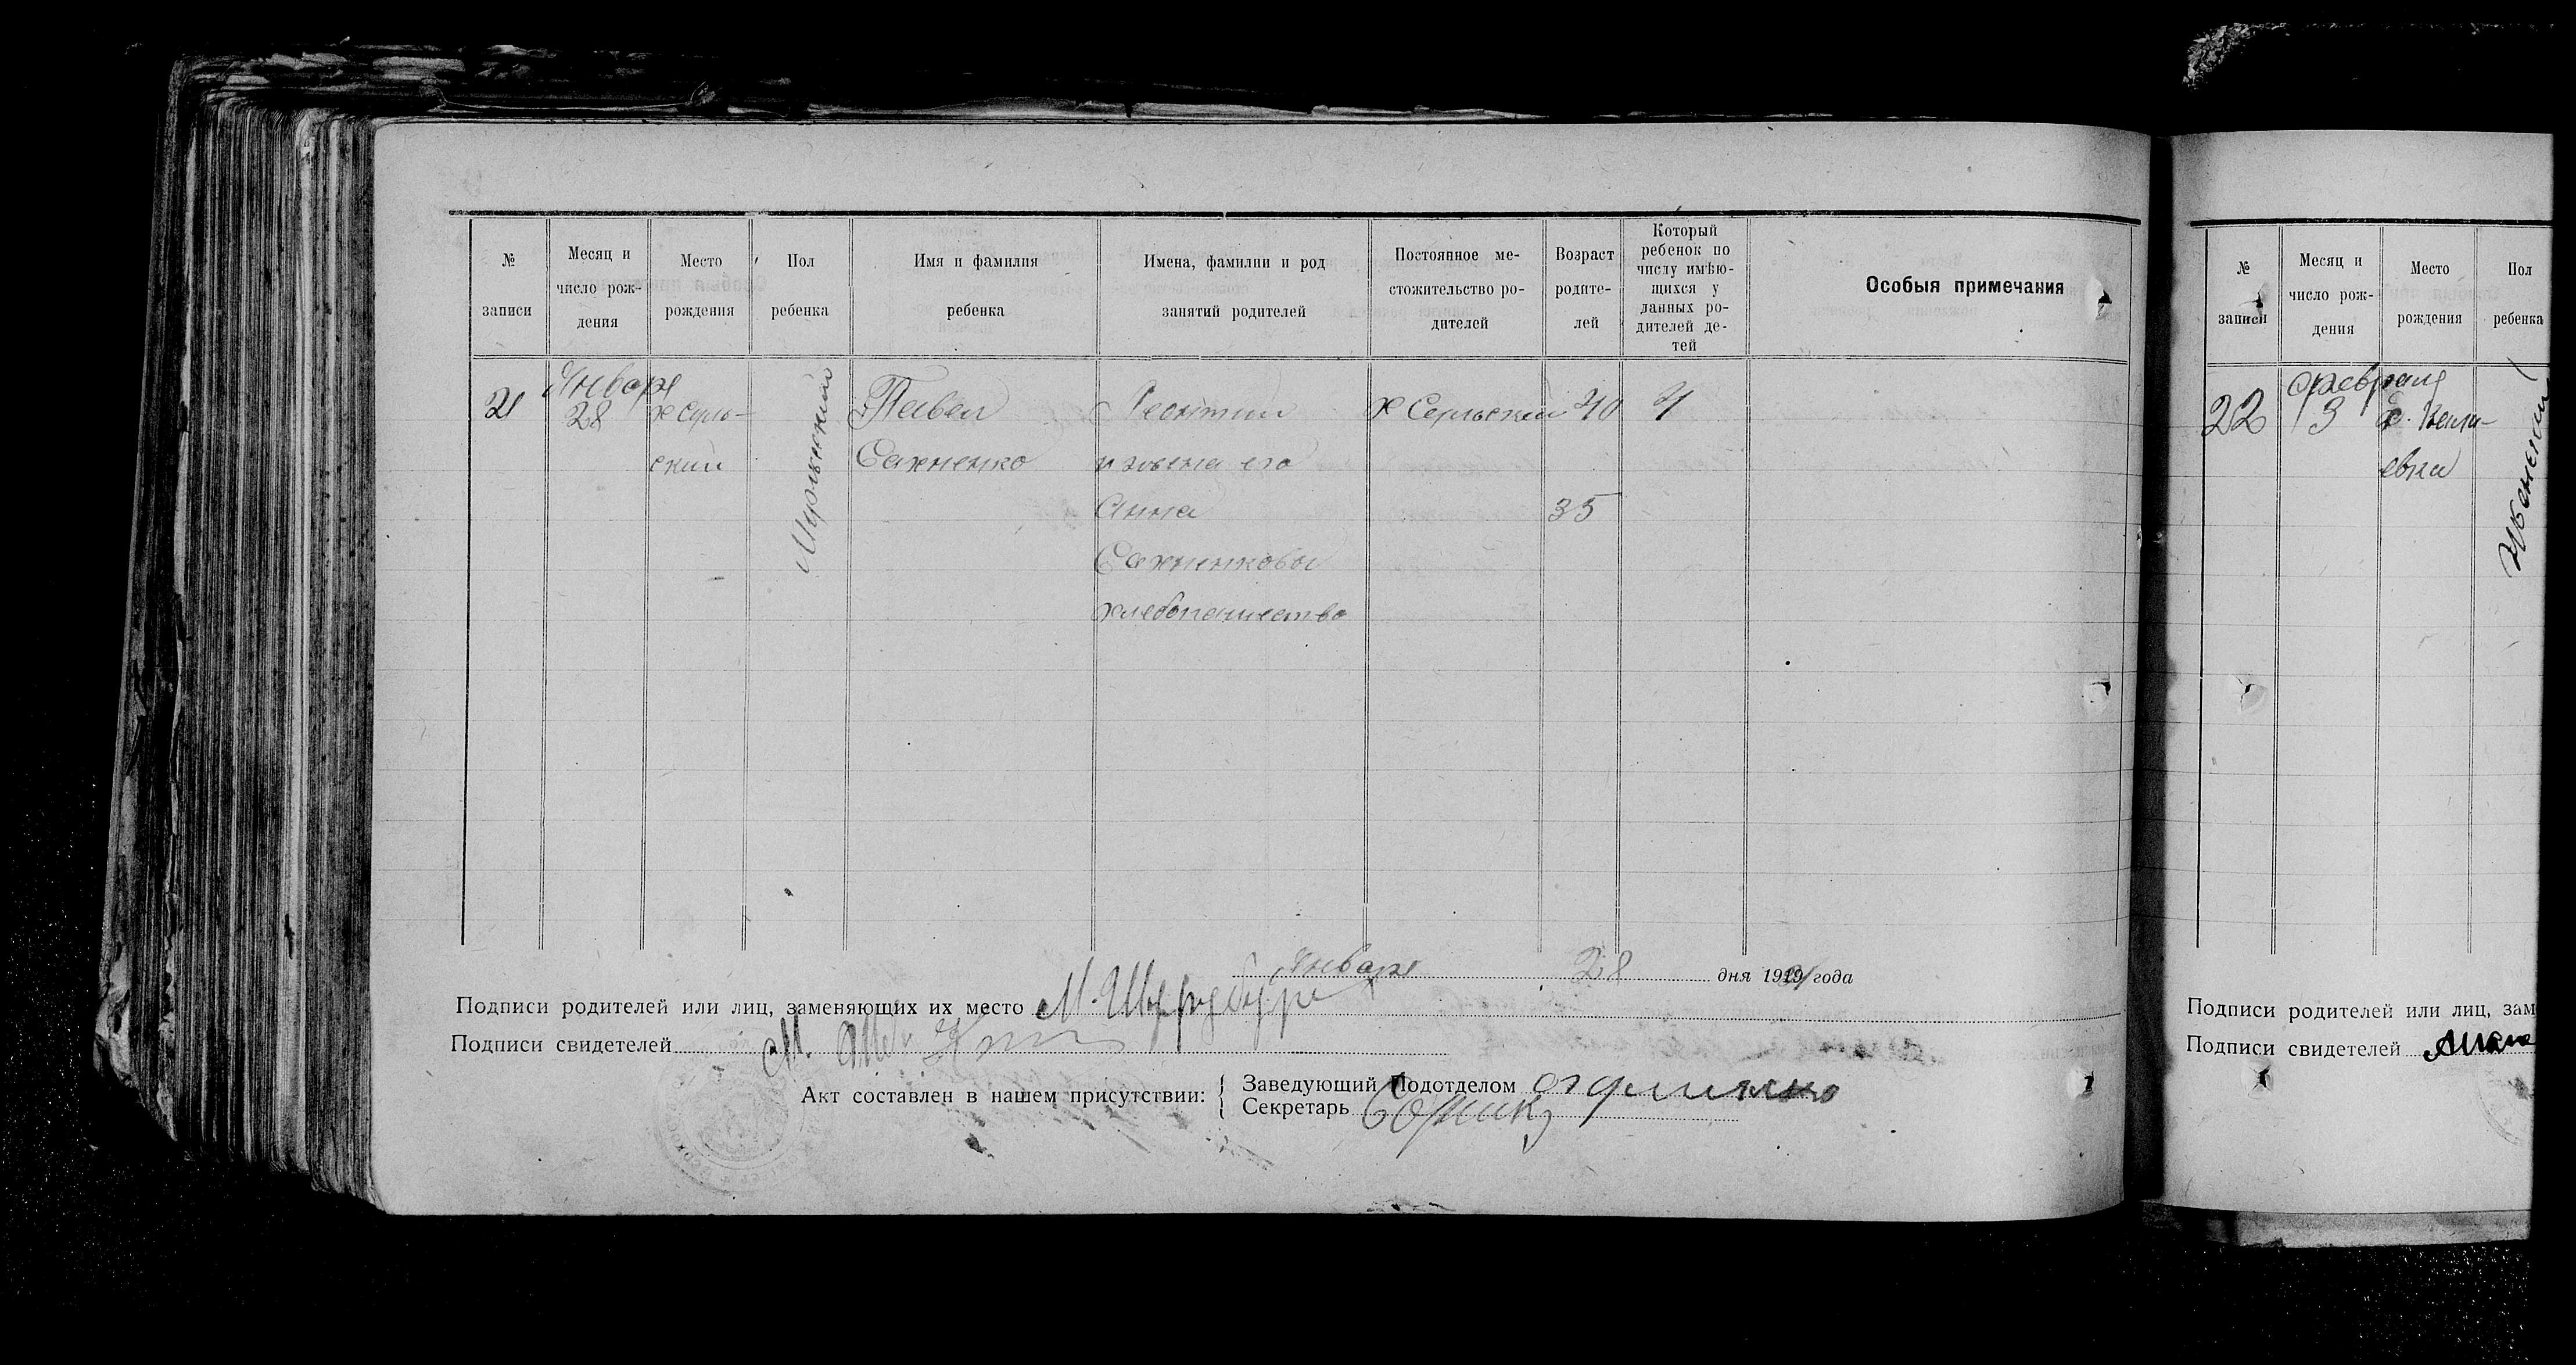 № записи
Месяц и число рож- дения
Место рождения
Пол ребенка
Имя и фамилия ребенка
Имена, фамилии и род занятий родителей
Постоянное ме- стожительство ро- дителей
Возраст родите- лей
Который ребенок по числу имѣю- щихся у данных ро- дителей де- тей
Особыя примечания
21
Января
28
ский
Мужеский
Павел
Сахненко
Леонтий
и жена его
Анна
Сахненковы
хлебопашество
х
40
35
4
Января 28 дня 1921 года
Подписи родителей или лиц, заменяющих их место М.
Подписи свидетелей М.
Акт составлен в нашем присутствии:
Заведующий Подотделом
Секретарь
№ записи
Месяц и число рож- дения
Место рождения
Пол ребенка
22
Февраля
3
евка
Женский
Подписи родителей или лиц, зам
Подписи свидетелей